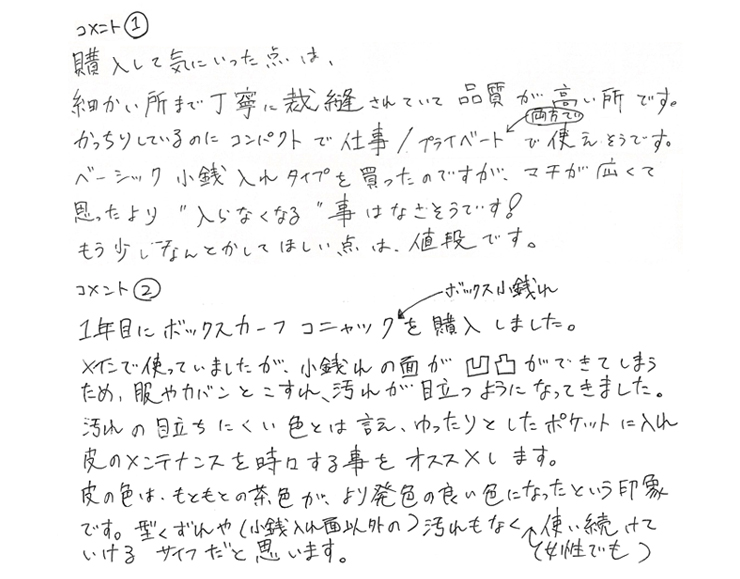 コメント①
購入して気にいった点は、
細かい所まで丁寧に裁縫されていて品質が高い所です。
かっちりしているのにコンパクトで仕事/プライベート両方でで使えそうです。
ベーシック小銭入れタイプを買ったのですが、マチが広くて
思ったより"入らなくなる"事はなさそうです!
もう少しなんとかしてほしい点は、値段です。
コメント②
ボックス小銭入れ
1年目にボックスカーフ コニャックを購入しました。
メインで使っていましたが、小銭入れの面が凹凸ができてしまう
ため、服やカバンとこすれ、汚れが目立つようになってきました。
汚れの目立ちにくい色とは言え、ゆったりとしたポケットに入れ
皮のメンテナンスを時々する事をオススメします。
皮の色は、もともとの茶色が、より発色の良い色になったという印象
です。型くずれや(小銭入れ面以外の)汚れもなく使い続けて
いけるサイフだと思います。
(女性でも)